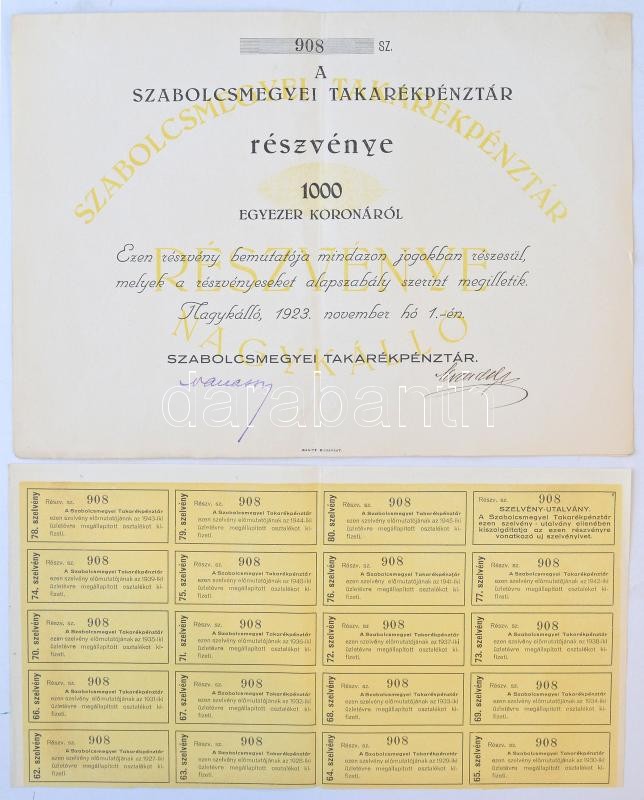 908 SZ.
A
SZABOLCSMEGYEI TAKARÉKPÉNZTÁR
részvénye
1000
EGYEZER KORONÁRÓL
Ezen részvény bemutatója mindazon jogokban részesül,
melyek a részvényeseket alapszabály szerint megilletik.
Nagykálló, 1923. november hó 1.-én.
SZABOLCSMEGYEI TAKARÉKPÉNZTÁR.
SZABOLCSMEGYEI TAKARÉKPÉNZTÁR
RÉSZVÉNYE
NAGYKÁLLÓ
darabanth
78. szelvény
Részv. sz. 908
A Szabolcsmegyei Takarékpénztár
ezen szelvény előmutatójának az 1943-iki
üzletévre megállapított osztalékot ki-
fizeti.
79. szelvény
Részv. sz. 908
A Szabolcsmegyei Takarékpénztár
ezen szelvény előmutatójának az 1944-iki
üzletévre megállapított osztalékot ki-
fizeti.
80. szelvény
Részv. sz. 908
A Szabolcsmegyei Takarékpénztár
ezen szelvény előmutatójának az 1945-iki
üzletévre megállapított osztalékot ki-
fizeti.
Részv. sz. 908
SZELVÉNY-UTALVÁNY.
A Szabolcsmegyei Takarékpénztár
ezen szelvény-utalvány ellenében
kiszolgáltatja az ezen részvényre
vonatkozó uj szelvényivet.
74. szelvény
Részv. sz. 908
A Szabolcsmegyei Takarékpénztár
ezen szelvény előmutatójának az 1939-iki
üzletévre megállapított osztalékot ki-
fizeti.
75. szelvény
Részv. sz. 908
A Szabolcsmegyei Takarékpénztár
ezen szelvény előmutatójának az 1940-iki
üzletévre megállapított osztalékot ki-
fizeti.
76. szelvény
Részv. sz. 908
A Szabolcsmegyei Takarékpénztár
ezen szelvény előmutatójának az 1941-iki
üzletévre megállapított osztalékot ki-
fizeti.
77. szelvény
Részv. sz. 908
A Szabolcsmegyei Takarékpénztár
ezen szelvény előmutatójának az 1942-iki
üzletévre megállapított osztalékot ki-
fizeti.
70. szelvény
Részv. sz. 908
A Szabolcsmegyei Takarékpénztár
ezen szelvény előmutatójának az 1935-iki
üzletévre megállapított osztalékot ki-
fizeti.
71. szelvény
Részv. sz. 908
A Szabolcsmegyei Takarékpénztár
ezen szelvény előmutatójának az 1936-iki
üzletévre megállapított osztalékot ki-
fizeti.
72. szelvény
Részv. sz. 908
A Szabolcsmegyei Takarékpénztár
ezen szelvény előmutatójának az 1937-iki
üzletévre megállapított osztalékot ki-
fizeti.
73. szelvény
Részv. sz. 908
A Szabolcsmegyei Takarékpénztár
ezen szelvény előmutatójának az 1938-iki
üzletévre megállapított osztalékot ki-
fizeti.
66. szelvény
Részv. sz. 908
A Szabolcsmegyei Takarékpénztár
ezen szelvény előmutatójának az 1931-iki
üzletévre megállapított osztalékot ki-
fizeti.
67. szelvény
Részv. sz. 908
A Szabolcsmegyei Takarékpénztár
ezen szelvény előmutatójának az 1932-iki
üzletévre megállapított osztalékot ki-
fizeti.
68. szelvény
Részv. sz. 908
A Szabolcsmegyei Takarékpénztár
ezen szelvény előmutatójának az 1933-iki
üzletévre megállapított osztalékot ki-
fizeti.
69. szelvény
Részv. sz. 908
A Szabolcsmegyei Takarékpénztár
ezen szelvény előmutatójának az 1934-iki
üzletévre megállapított osztalékot ki-
fizeti.
62. szelvény
Részv. sz. 908
A Szabolcsmegyei Takarékpénztár
ezen szelvény előmutatójának az 1927-iki
üzletévre megállapított osztalékot ki-
fizeti.
63. szelvény
Részv. sz. 908
A Szabolcsmegyei Takarékpénztár
ezen szelvény előmutatójának az 1928-iki
üzletévre megállapított osztalékot ki-
fizeti.
64. szelvény
Részv. sz. 908
A Szabolcsmegyei Takarékpénztár
ezen szelvény előmutatójának az 1929-iki
üzletévre megállapított osztalékot ki-
fizeti.
65. szelvény
Részv. sz. 908
A Szabolcsmegyei Takarékpénztár
ezen szelvény előmutatójának az 1930-iki
üzletévre megállapított osztalékot ki-
fizeti.